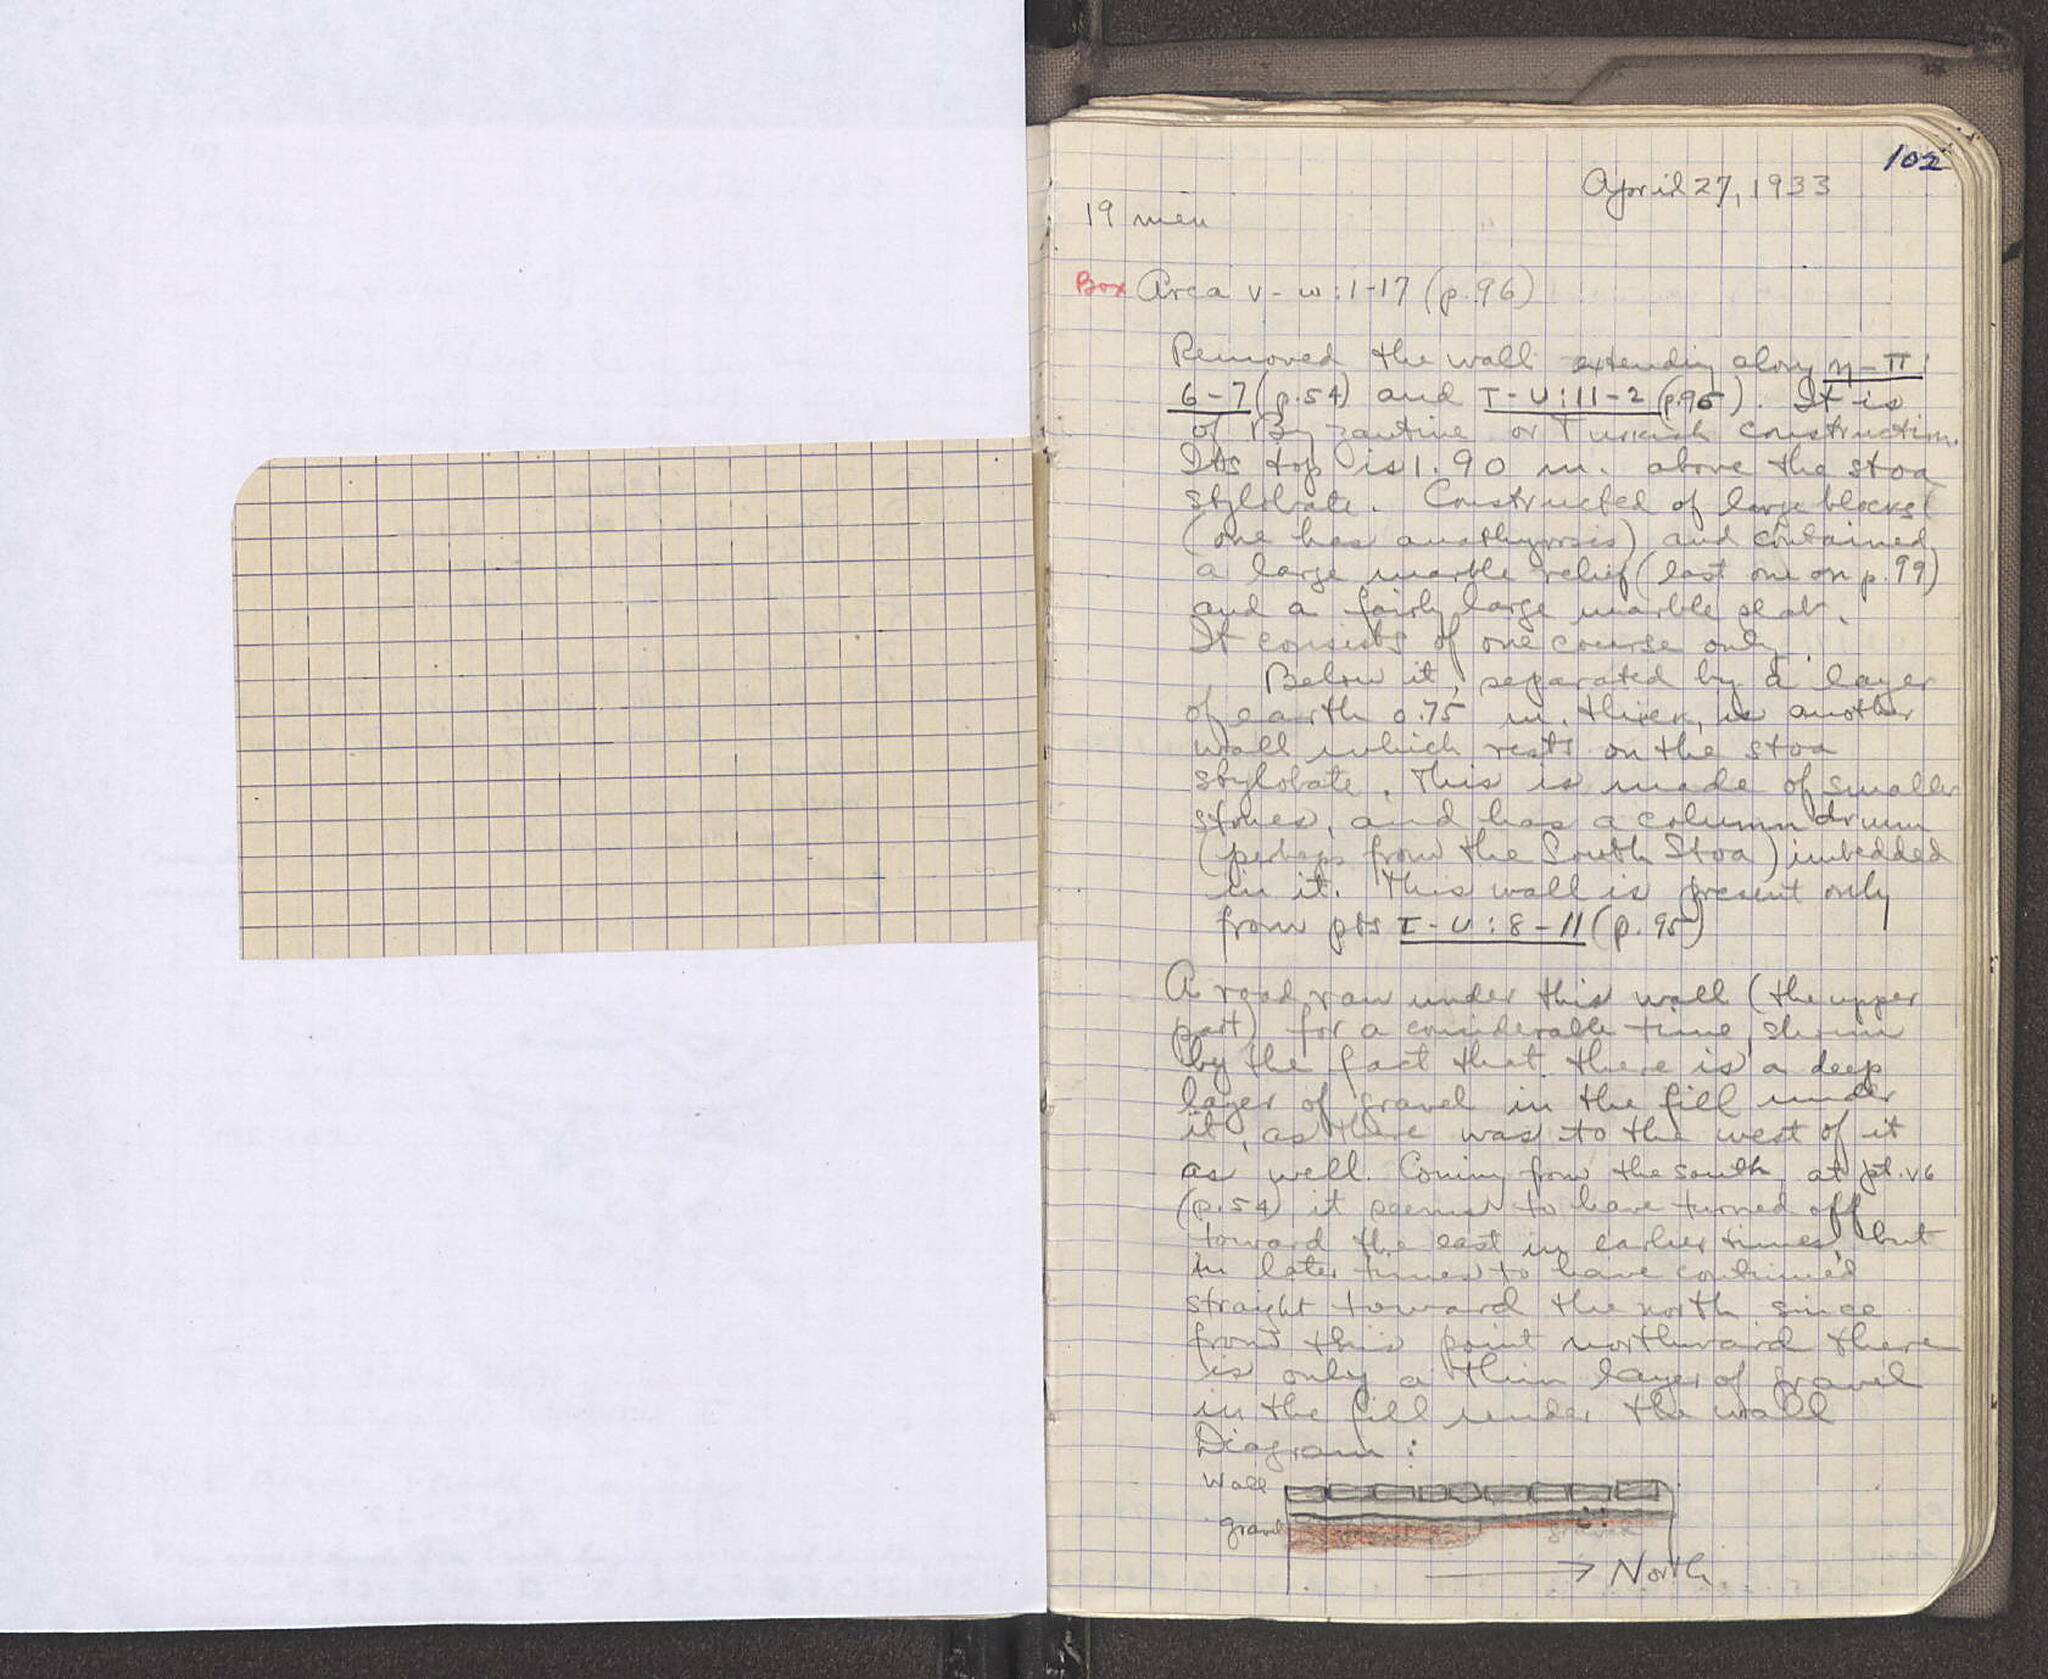 102
April 27, 1933
19 men
Box Area v-w:1-17 (p.96)
Removed the wall extending along η-π:
6-7 (p.54) and T-U:11-2 (p.95). It is
of Byzantine or Turkish construction.
Its top is 1.90 m. above the stoa
stylobate. Constructed of large blocks
(one has anathyrosis) and contained
a large marble relief (last one on p.99)
and a fairly large marble slab.
It consists of one course only.
Below it, separated by a layer
of earth 0.75 m. thick, is another
wall which rests on the stoa
stylobate. This is made of smaller
stones, and has a column drum
(perhaps from the South Stoa) imbedded
in it. This wall is present only
from pts T-U:8-11 (p.95)
A road ran under this wall (the upper
part) for a considerable time, shown
by the fact that there is a deep
layer of gravel in the fill under
it, as there was to the west of it
as well. Coming from the south, at pt. v6
(p.54) it seems to have turned off
toward the east in earlier times, but
in later times to have continued
straight toward the north since
from this point northward there
is only a thin layer of gravel
in the fill under the wall
Diagram:
Wall
gravel
→ North